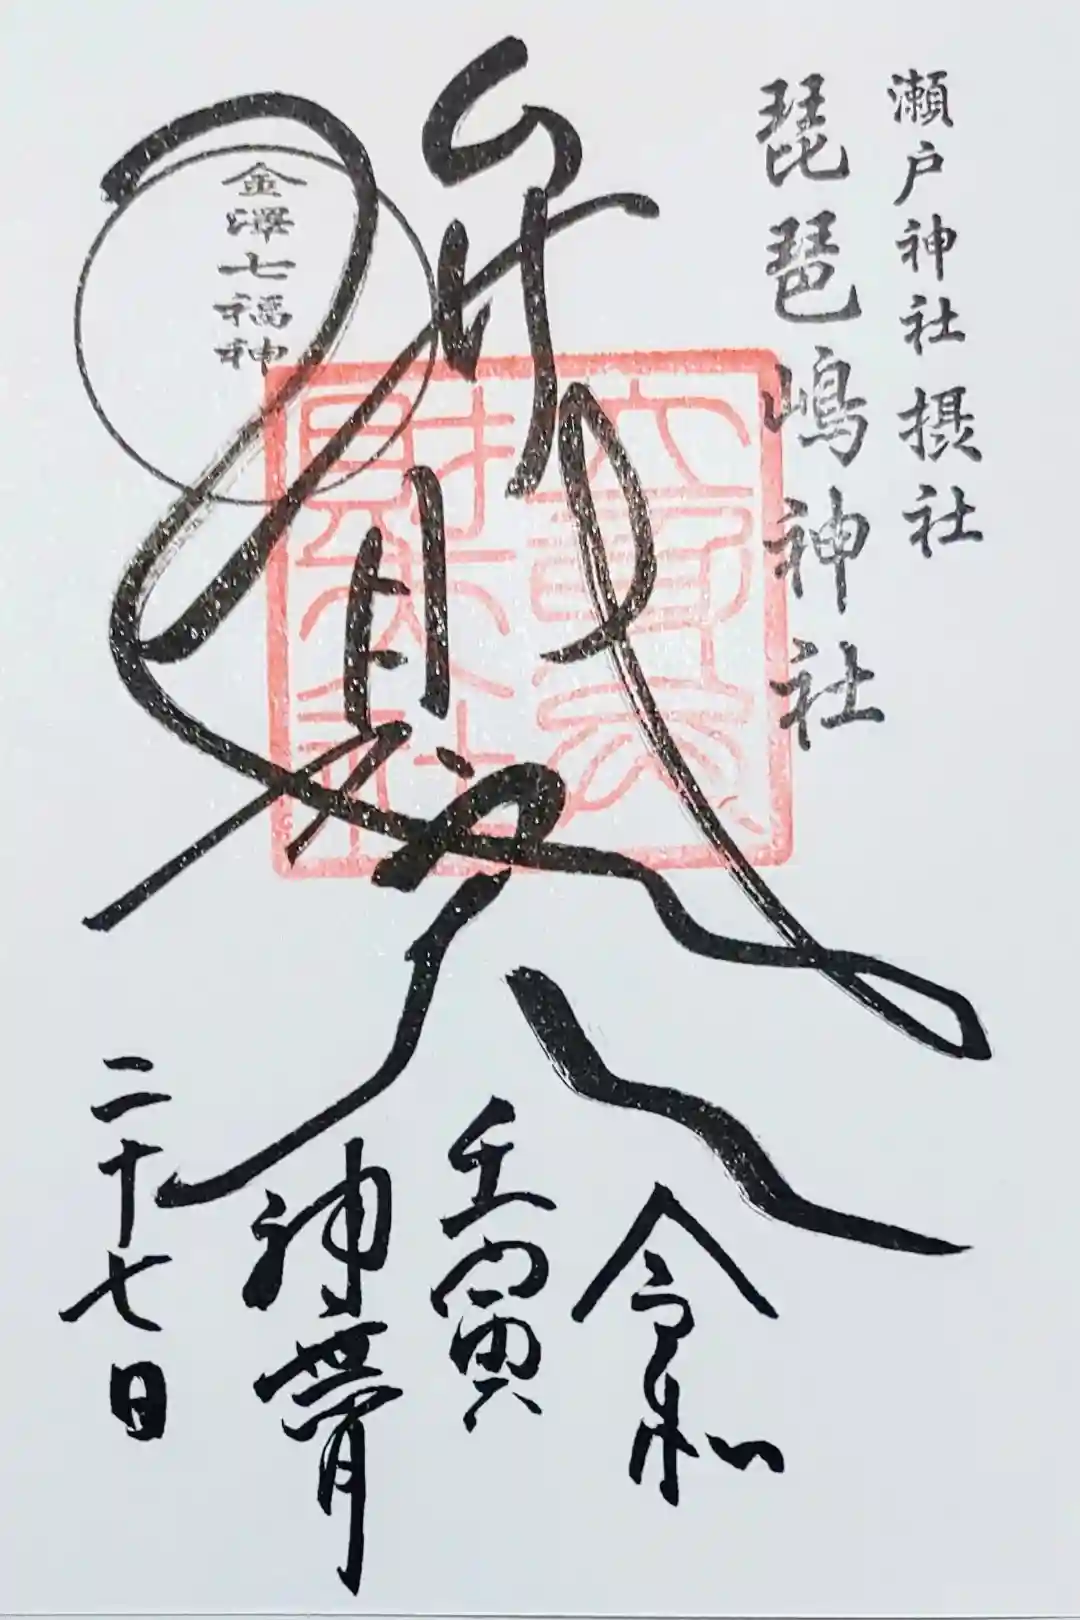 瀬戸神社摂社
琵琶嶋神社
弁財天
立身弁
財天社
金澤七福神
令和
壬寅
神無月
二十七日